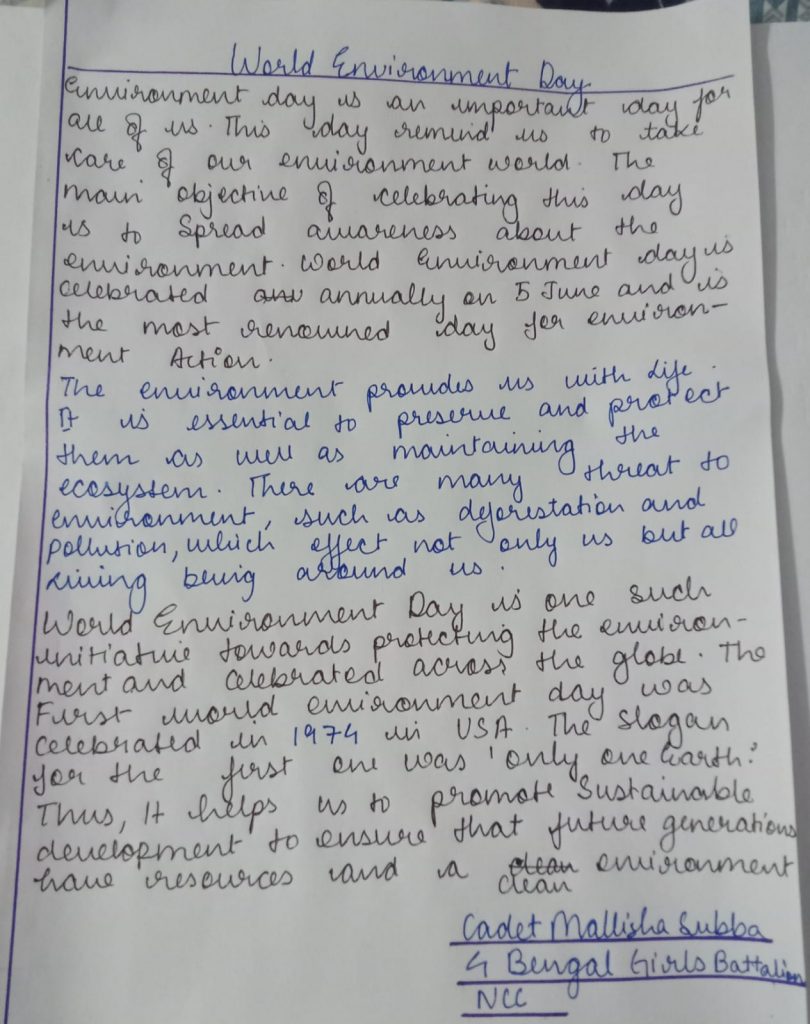 World Environment Day
Environment day is an important day for
all of us. This day remind us to take
care of our environment world. The
main objective of celebrating this day
is to Spread awareness about the
environment. World Environment day is
celebrated annually on 5 June and is
the most renowned day for environ-
ment Action.
The environment provides us with life.
It is essential to preserve and protect
them as well as maintaining the
ecosystem. There are many threat to
environment, such as deforestation and
pollution, which effect not only us but all
living being around us.
World Environment Day is one such
initiative towards protecting the environ-
ment and celebrated across the globe. The
First world environment day was
celebrated in 1974 in USA. The Slogan
for the first one was 'only one Earth.'
Thus, It helps us to promote Sustainable
development to ensure that future generations
have resources and a clean environment
clean
Cadet Mallisha Subba
4 Bengal Girls Battalion
NCC